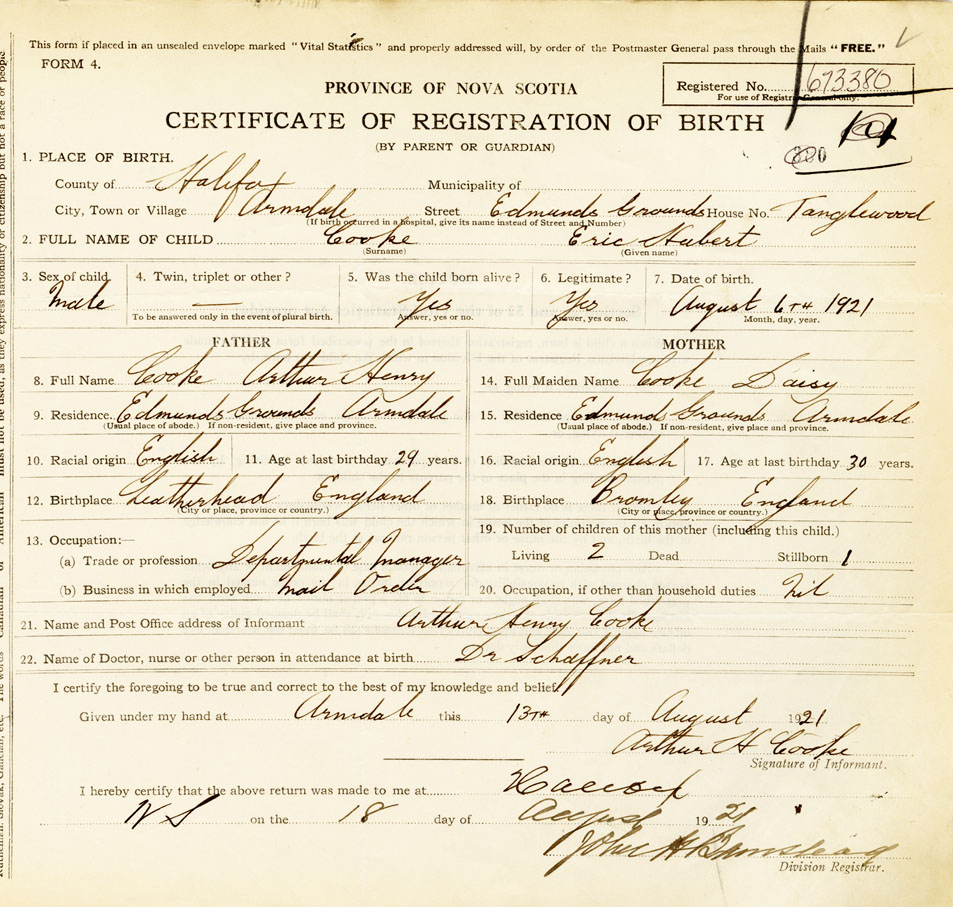 This form if placed in an unsealed envelope marked "Vital Statistics" and properly addressed will, by order of the Postmaster General pass through the Mails "FREE."
FORM 4.
Registered No. 673380
For use of Registrar General only.
PROVINCE OF NOVA SCOTIA
CERTIFICATE OF REGISTRATION OF BIRTH
(BY PARENT OR GUARDIAN)
1. PLACE OF BIRTH.
County of Halifax Municipality of
City, Town or Village Armdale Street Edmunds Grounds House No. Tanglewood
(If birth occurred in a hospital, give its name instead of Street and Number)
2. FULL NAME OF CHILD Cooke Eric Hubert
(Surname) (Given name)
3. Sex of child 4. Twin, triplet or other? 5. Was the child born alive? 6. Legitimate? 7. Date of birth.
Male — Yes Yes August 6TH 1921
To be answered only in the event of plural birth. Answer, yes or no. Answer, yes or no. Month, day, year.
FATHER MOTHER
8. Full Name Cooke Arthur Henry 14. Full Maiden Name Cooke Daisy
9. Residence. Edmunds Grounds Armdale 15. Residence Edmunds Grounds Armdale
(Usual place of abode.) If non-resident, give place and province. (Usual place of abode.) If non-resident, give place and province.
10. Racial origin English 11. Age at last birthday 29 years. 16. Racial origin English 17. Age at last birthday 30 years.
12. Birthplace Leatherhead England 18. Birthplace Bromley England
(City or place, province or country.) (City or place, province or country.)
13. Occupation:— 19. Number of children of this mother (including this child.)
(a) Trade or profession Departmental Manager Living 2 Dead Stillborn 1
(b) Business in which employed Mail Order 20. Occupation, if other than household duties Nil
21. Name and Post Office address of Informant Arthur Henry Cooke
22. Name of Doctor, nurse or other person in attendance at birth Dr Schaffner
I certify the foregoing to be true and correct to the best of my knowledge and belief.
Given under my hand at Armdale this 13TH day of August 1921
Arthur H Cooke
Signature of Informant.
I hereby certify that the above return was made to me at Halifax
N S on the 18 day of August 1921
John H
Division Registrar.